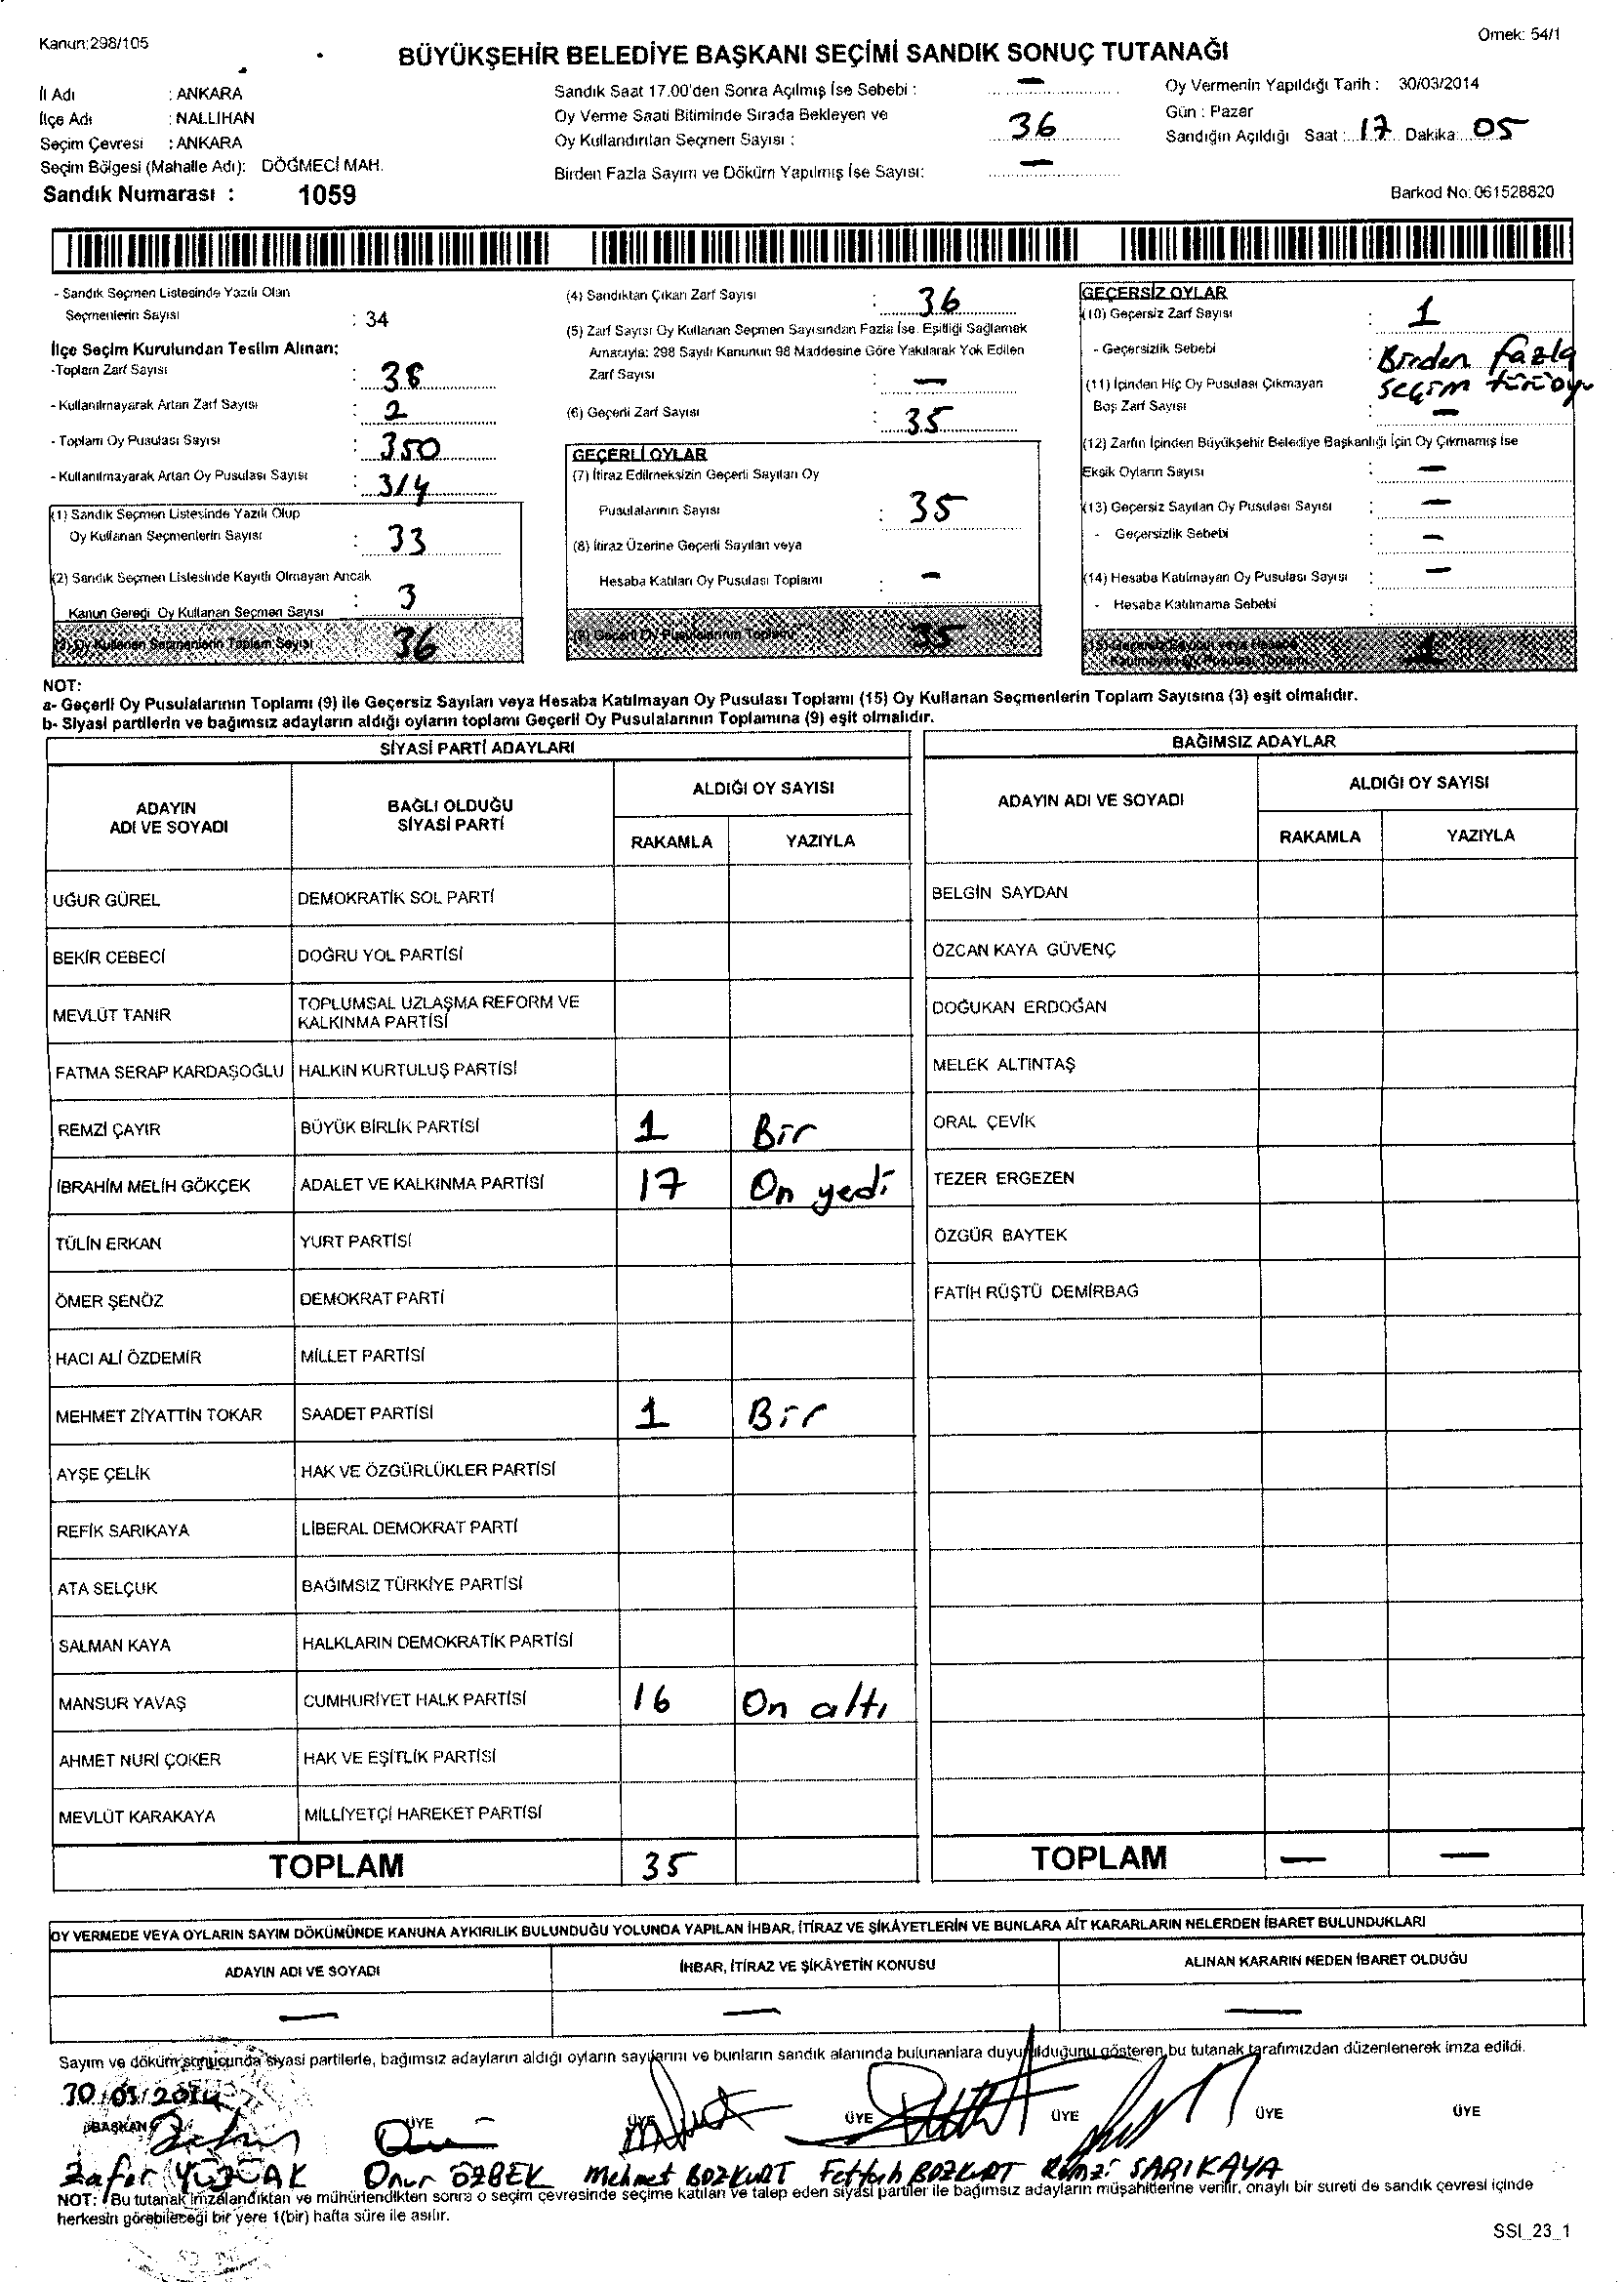 Kanun:298/105
Örnek: 54/1
BÜYÜKŞEHİR BELEDİYE BAŞKANI SEÇİMİ SANDIK SONUÇ TUTANAĞI
İl Adı : ANKARA
İlçe Adı : NALLIHAN
Seçim Çevresi : ANKARA
Seçim Bölgesi (Mahalle Adı): DÖĞMECİ MAH.
Sandık Numarası : 1059
Sandık Saat 17.00'den Sonra Açılmış İse Sebebi : —
Oy Verme Saati Bitiminde Sırada Bekleyen ve
Oy Kullandırılan Seçmen Sayısı : 36
Birden Fazla Sayım ve Döküm Yapılmış İse Sayısı: —
Oy Vermenin Yapıldığı Tarih : 30/03/2014
Gün : Pazar
Sandığın Açıldığı Saat : 17 Dakika: 05
Barkod No: 061528820
- Sandık Seçmen Listesinde Yazılı Olan
Seçmenlerin Sayısı : 34
İlçe Seçim Kurulundan Teslim Alınan:
-Toplam Zarf Sayısı : 38
- Kullanılmayarak Artan Zarf Sayısı : 2
- Toplam Oy Pusulası Sayısı : 350
- Kullanılmayarak Artan Oy Pusulası Sayısı : 314
(1) Sandık Seçmen Listesinde Yazılı Olup
Oy Kullanan Seçmenlerin Sayısı : 33
(2) Sandık Seçmen Listesinde Kayıtlı Olmayan Ancak
Kanun Gereği Oy Kullanan Seçmen Sayısı : 3
(3) Oy Kullanan Seçmenlerin Toplam Sayısı 36
(4) Sandıktan Çıkan Zarf Sayısı : 36
(5) Zarf Sayısı Oy Kullanan Seçmen Sayısından Fazla İse. Eşitliği Sağlamak
Amacıyla: 298 Sayılı Kanunun 98 Maddesine Göre Yakılarak Yok Edilen
Zarf Sayısı : —
(6) Geçerli Zarf Sayısı : 35
GEÇERLİ OYLAR
(7) İtiraz Edilmeksizin Geçerli Sayılan Oy
Pusulalarının Sayısı : 35
(8) İtiraz Üzerine Geçerli Sayılan veya
Hesaba Katılan Oy Pusulası Toplamı : —
(9) Geçerli Oy Pusulalarının Toplamı 35
GEÇERSİZ OYLAR
(10) Geçersiz Zarf Sayısı : 1
- Geçersizlik Sebebi : Birden fazla
seçim türü oyu
(11) İçinden Hiç Oy Pusulası Çıkmayan
Boş Zarf Sayısı : —
(12) Zarfın İçinden Büyükşehir Belediye Başkanlığı İçin Oy Çıkmamış İse
Eksik Oyların Sayısı : —
(13) Geçersiz Sayılan Oy Pusulası Sayısı : —
- Geçersizlik Sebebi : —
(14) Hesaba Katılmayan Oy Pusulası Sayısı : —
- Hesaba Katılmama Sebebi :
(15) Geçersiz Sayılan veya Hesaba
Katılmayan Oy Pusulası Toplamı 1
NOT:
a- Geçerli Oy Pusulalarının Toplamı (9) ile Geçersiz Sayılan veya Hesaba Katılmayan Oy Pusulası Toplamı (15) Oy Kullanan Seçmenlerin Toplam Sayısına (3) eşit olmalıdır.
b- Siyasi partilerin ve bağımsız adayların aldığı oyların toplamı Geçerli Oy Pusulalarının Toplamına (9) eşit olmalıdır.
SİYASİ PARTİ ADAYLARI
ADAYIN ADI VE SOYADI BAĞLI OLDUĞU SİYASİ PARTİ ALDIĞI OY SAYISI
RAKAMLA YAZIYLA
UĞUR GÜREL DEMOKRATİK SOL PARTİ
BEKİR CEBECİ DOĞRU YOL PARTİSİ
MEVLÜT TANIR TOPLUMSAL UZLAŞMA REFORM VE KALKINMA PARTİSİ
FATMA SERAP KARDAŞOĞLU HALKIN KURTULUŞ PARTİSİ
REMZİ ÇAYIR BÜYÜK BİRLİK PARTİSİ 1 Bir
İBRAHİM MELİH GÖKÇEK ADALET VE KALKINMA PARTİSİ 17 On yedi
TÜLİN ERKAN YURT PARTİSİ
ÖMER ŞENÖZ DEMOKRAT PARTİ
HACI ALİ ÖZDEMİR MİLLET PARTİSİ
MEHMET ZİYATTİN TOKAR SAADET PARTİSİ 1 Bir
AYŞE ÇELİK HAK VE ÖZGÜRLÜKLER PARTİSİ
REFİK SARIKAYA LİBERAL DEMOKRAT PARTİ
ATA SELÇUK BAĞIMSIZ TÜRKİYE PARTİSİ
SALMAN KAYA HALKLARIN DEMOKRATİK PARTİSİ
MANSUR YAVAŞ CUMHURİYET HALK PARTİSİ 16 On altı
AHMET NURİ ÇOKER HAK VE EŞİTLİK PARTİSİ
MEVLÜT KARAKAYA MİLLİYETÇİ HAREKET PARTİSİ
TOPLAM 35
BAĞIMSIZ ADAYLAR
ADAYIN ADI VE SOYADI ALDIĞI OY SAYISI
RAKAMLA YAZIYLA
BELGİN SAYDAN
ÖZCAN KAYA GÜVENÇ
DOĞUKAN ERDOĞAN
MELEK ALTINTAŞ
ORAL ÇEVİK
TEZER ERGEZEN
ÖZGÜR BAYTEK
FATİH RÜŞTÜ DEMİRBAĞ
TOPLAM — —
OY VERMEDE VEYA OYLARIN SAYIM DÖKÜMÜNDE KANUNA AYKIRILIK BULUNDUĞU YOLUNDA YAPILAN İHBAR, İTİRAZ VE ŞİKÂYETLERİN VE BUNLARA AİT KARARLARIN NELERDEN İBARET BULUNDUKLARI
ADAYIN ADI VE SOYADI İHBAR, İTİRAZ VE ŞİKÂYETİN KONUSU ALINAN KARARIN NEDEN İBARET OLDUĞU
— — —
Sayım ve döküm sonucunda siyasi partilerle, bağımsız adayların aldığı oyların sayılarını ve bunların sandık alanında bulunanlara duyurulduğunu gösteren bu tutanak tarafımızdan düzenlenerek imza edildi.
30/03/2014
BAŞKAN ÜYE ÜYE ÜYE ÜYE ÜYE ÜYE
Zafer YÜZÜAK Onur ÖZBEK Mehmet BOZKURT Fettah BOZKURT Remzi SARIKAYA
NOT: Bu tutanak imzalandıktan ve mühürlendikten sonra o seçim çevresinde seçime katılan ve talep eden siyasi partiler ile bağımsız adayların müşahitlerine verilir, onaylı bir sureti de sandık çevresi içinde
herkesin görebileceği bir yere 1(bir) hafta süre ile asılır.
SSI_23_1